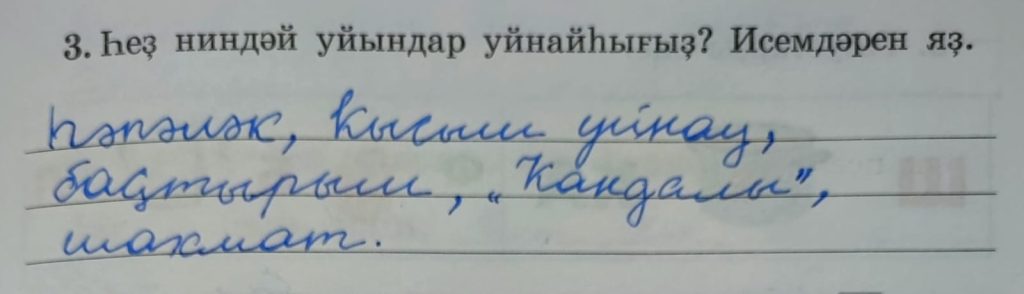 3. Һеҙ ниндәй уйындар уйнайһығыҙ? Исемдәрен яҙ.
Һәпәләк, Кысыш уйнау,
баҫтырыш, „Кандалы”,
шахмат.